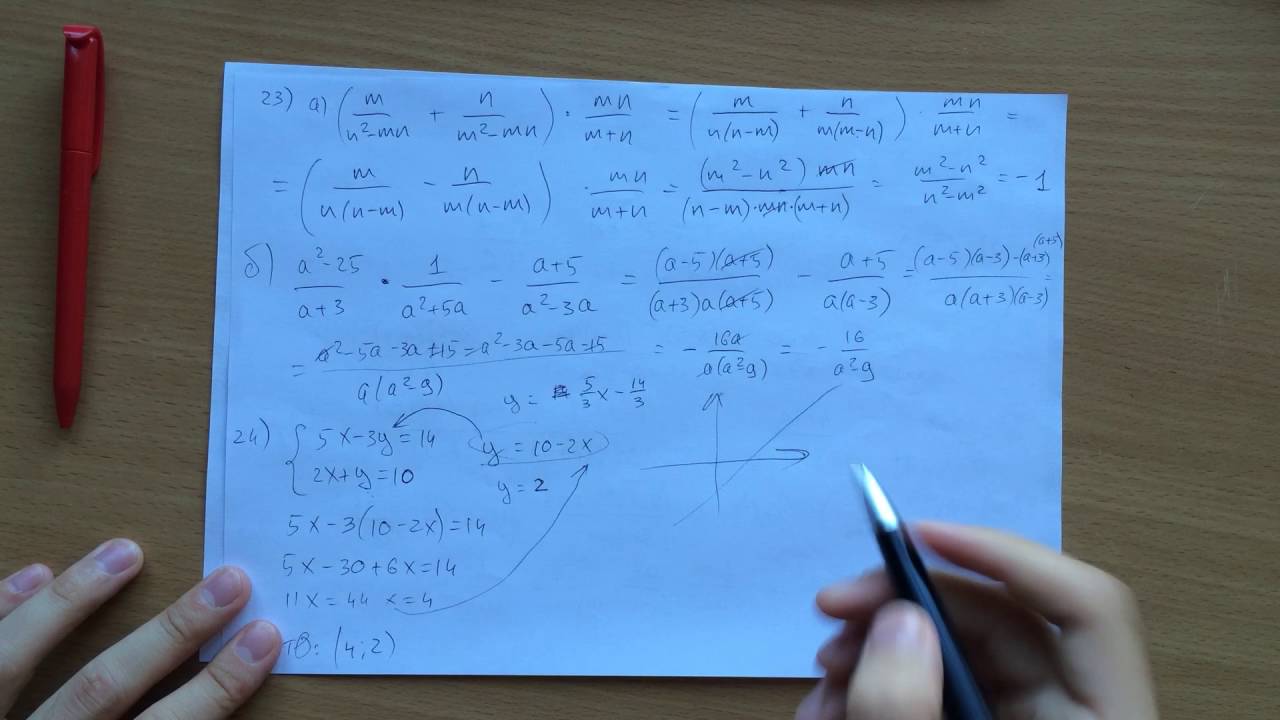 23) а) (m/(n²-mn) + n/(m²-mn)) · mn/(m+n) = (m/(n(n-m)) + n/(m(m-n))) · mn/(m+n) =
= (m/(n(n-m)) - n/(m(n-m))) · mn/(m+n) = (m²-n²) mn/((n-m)·mn·(m+n)) = (m²-n²)/(n²-m²) = -1
б) (a²-25)/(a+3) · 1/(a²+5a) - (a+5)/(a²-3a) = (a-5)(a+5)/((a+3)a(a+5)) - (a+5)/(a(a-3)) = ((a-5)(a-3)-(a+3)(a+5))/(a(a+3)(a-3)) =
= (a²-5a-3a+15-a²-3a-5a-15)/(a(a²-9)) = -16a/(a(a²-9)) = -16/(a²-9)
y = 5/3x - 14/3
24) { 5x-3y=14 y=10-2x
2x+y=10 y=2
5x-3(10-2x)=14
5x-30+6x=14
11x=44 x=4
: (4;2)